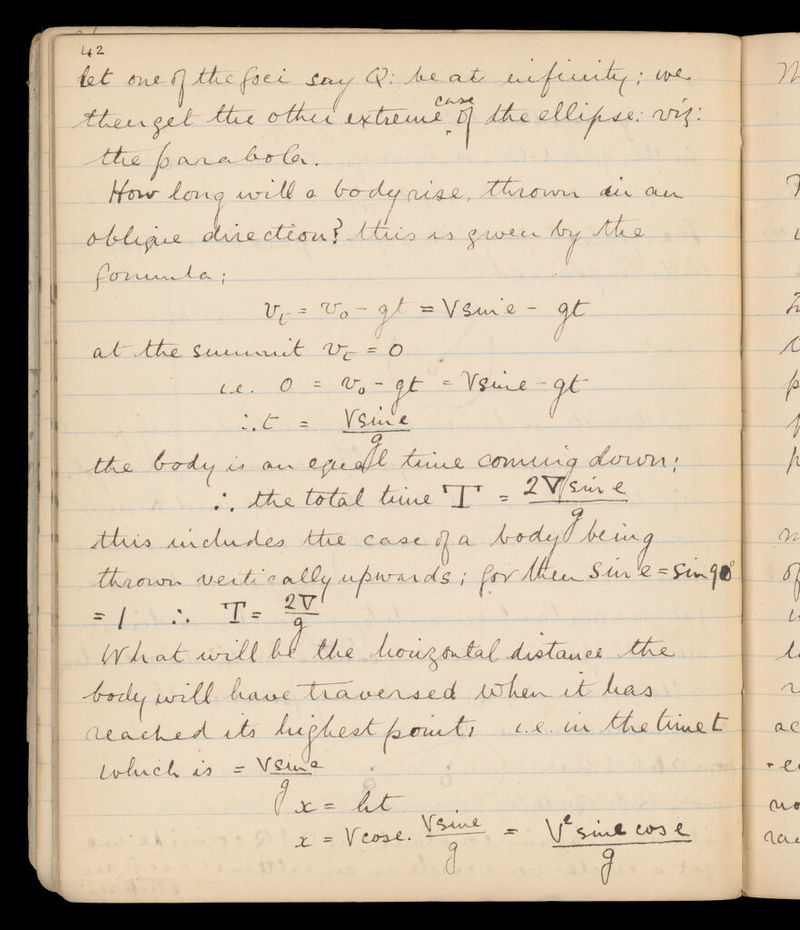 42
let one of the foci say Q: be at infinity; we
then get the other extreme case of the ellipse: viz:
the parabola.
How long will a body rise, thrown in an
oblique direction? this is given by the
formula;
v_t = v_0 - gt = V sin e - gt
at the summit v_t = 0
i.e. 0 = v_0 - gt = V sin e - gt
∴ t = V sin e / g
the body is an equal time coming down;
∴ the total time T = 2V sin e / g
this includes the case of a body being
thrown vertically upwards; for then sin e = sin 90°
= 1 ∴ T = 2V / g
What will be the horizontal distance the
body will have traversed when it has
reached its highest point; i.e. in the time t
which is = V sin e / g
x = ht
x = V cos e . V sin e / g = V² sin e cos e / g